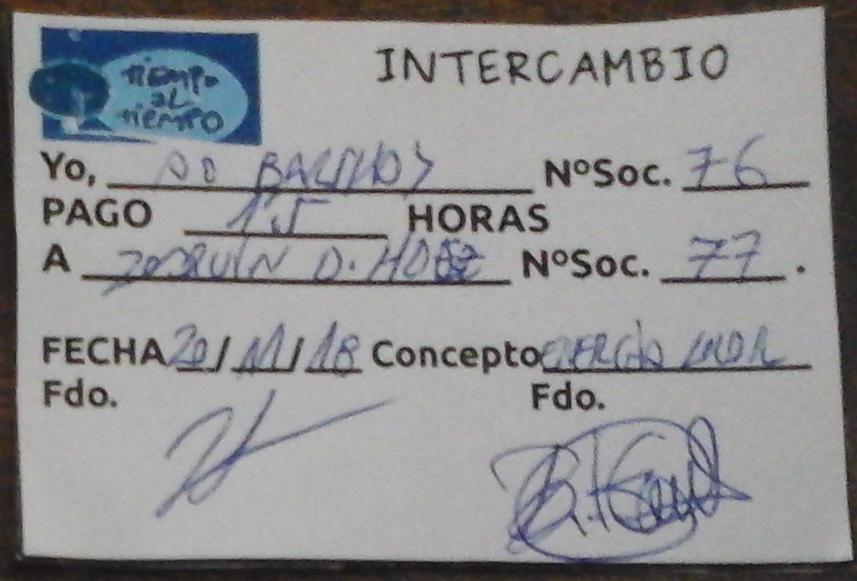 TIEMPO
AL
TIEMPO
INTERCAMBIO
Yo, NºSoc. 76
PAGO 1'5 HORAS
A JOAQUÍN D. NºSoc. 77.
FECHA 20/11/18 Concepto
Fdo. Fdo.